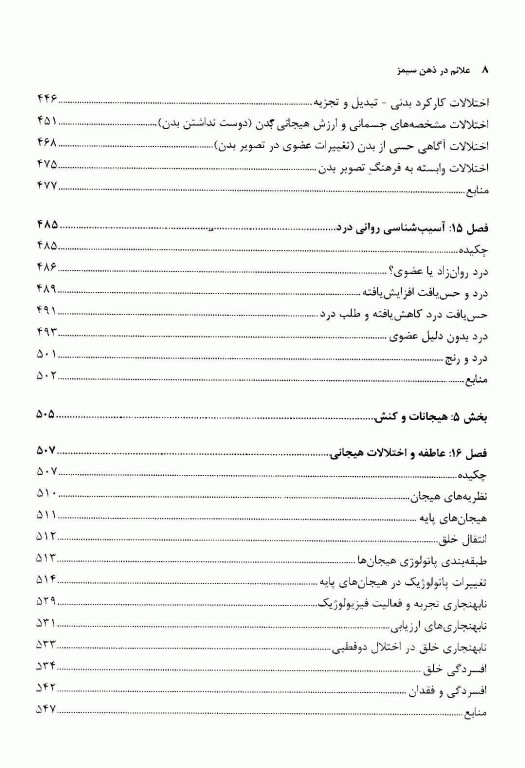 ۸ علائم در ذهن سیمز
اختلالات کارکرد بدنی - تبدیل و تجزیه ۴۴۶
اختلالات مشخصه‌های جسمانی و ارزش هیجانی بدن (دوست نداشتن بدن) ۴۵۱
اختلالات آگاهی حسی از بدن (تغییرات عضوی در تصویر بدن) ۴۶۸
اختلالات وابسته به فرهنگِ تصویر بدن ۴۷۵
منابع ۴۷۷
فصل ۱۵: آسیب‌شناسی روانی درد ۴۸۵
چکیده ۴۸۵
درد روان‌زاد یا عضوی؟ ۴۸۶
درد و حس‌یافت افزایش‌یافته ۴۸۹
حس‌یافت درد کاهش‌یافته و طلب درد ۴۹۱
درد بدون دلیل عضوی ۴۹۳
درد و رنج ۵۰۱
منابع ۵۰۲
بخش ۵: هیجانات و کنش ۵۰۵
فصل ۱۶: عاطفه و اختلالات هیجانی ۵۰۷
چکیده ۵۰۷
نظریه‌های هیجان ۵۱۰
هیجان‌های پایه ۵۱۱
انتقال خلق ۵۱۲
طبقه‌بندی پاتولوژی هیجان‌ها ۵۱۳
تغییرات پاتولوژیک در هیجان‌های پایه ۵۱۴
نابهنجاری تجربه و فعالیت فیزیولوژیک ۵۲۹
نابهنجاری‌های ارزیابی ۵۳۱
نابهنجاری خلق در اختلال دوقطبی ۵۳۳
افسردگی خلق ۵۳۴
افسردگی و فقدان ۵۴۲
منابع ۵۴۷